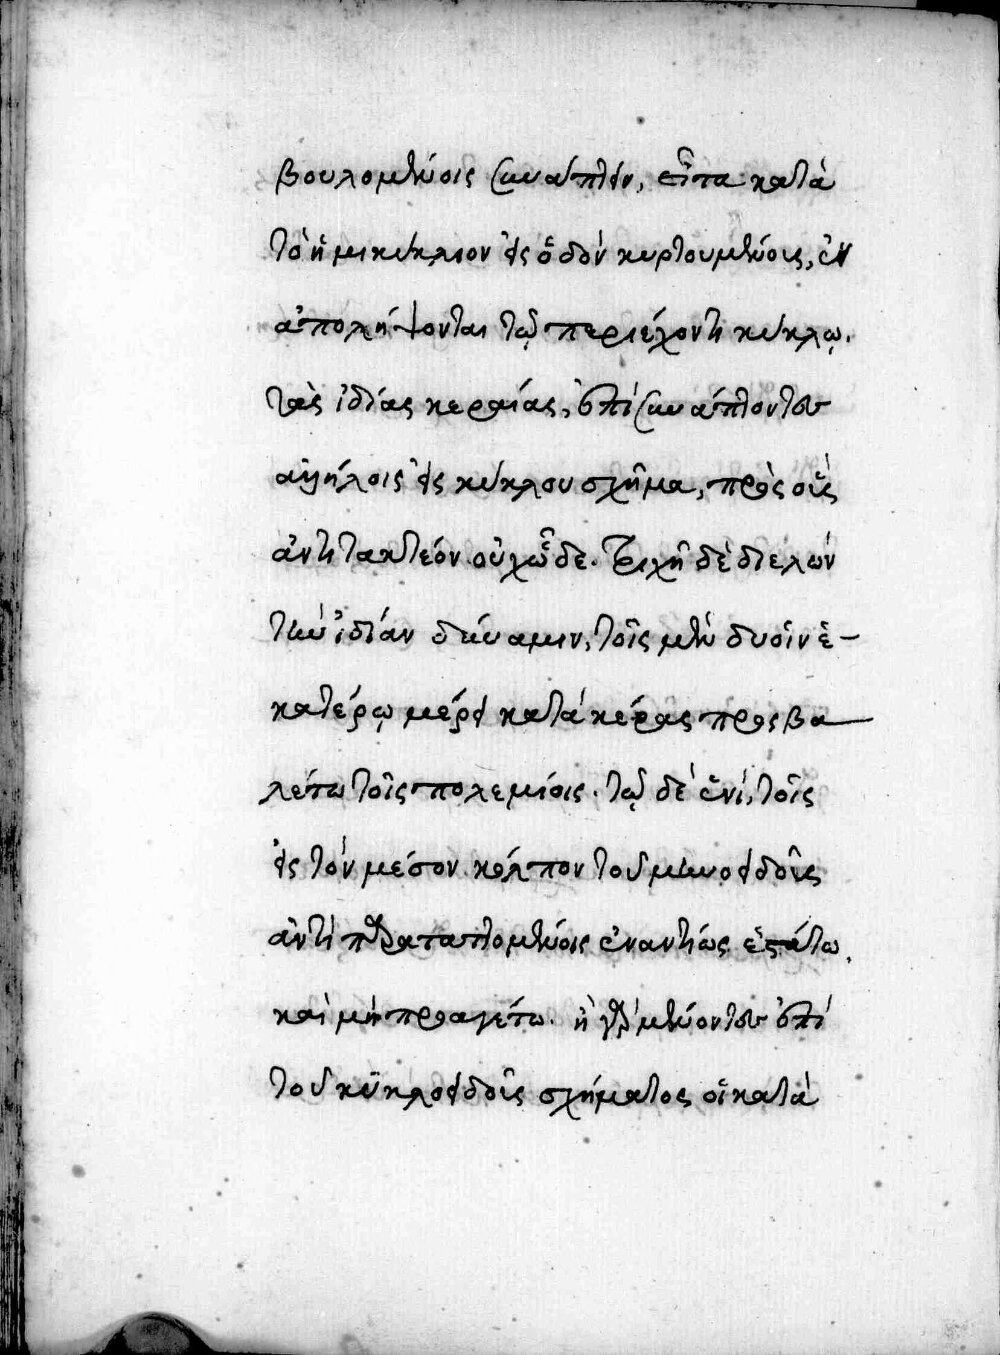 βουλομένοις συνάπτειν, εἶτα κατὰ
τὸ ἡμικύκλιον εἰς ὁδὸν κυρτουμένοις, ἐν
ἀπολήψονται τῷ περιέχοντι κύκλῳ.
τὰς ἰδίας κεραίας, ἐπισυνάπτοντες
ἀλλήλοις εἰς κύκλου σχῆμα, πρὸς οὓς
ἀντιτακτέον οὑχῶδε. Τριχῇ δὲ διελὼν
τὴν ἰδίαν δύναμιν, τοῖς μὲν δυσὶν ἑ-
κατέρῳ μέρει κατὰ κέρας προσβα
λέτω τοῖς πολεμίοις. τῷ δὲ ἑνὶ, τοῖς
εἰς τὸν μέσον κόλπον τοῦ μηνοειδοῦς
ἀντιπαραταττομένοις ἐναντίως ἑστάτω,
καὶ μὴ προαγέτω. ἢ γὰρ μένοντες ἐπὶ
τοῦ κυκλοειδοῦς σχήματος οἱ κατὰ